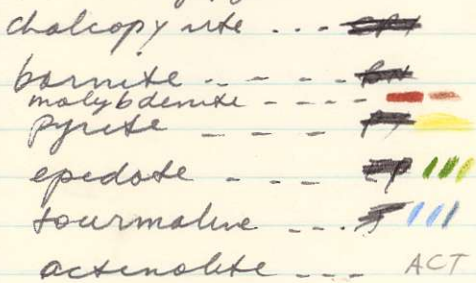 chalcopyrite ...-
bornite .. - - -
molybdenite - - - -
pyrite - - - -
epidote - - - -
tourmaline -- ...
actinolite --- ACT